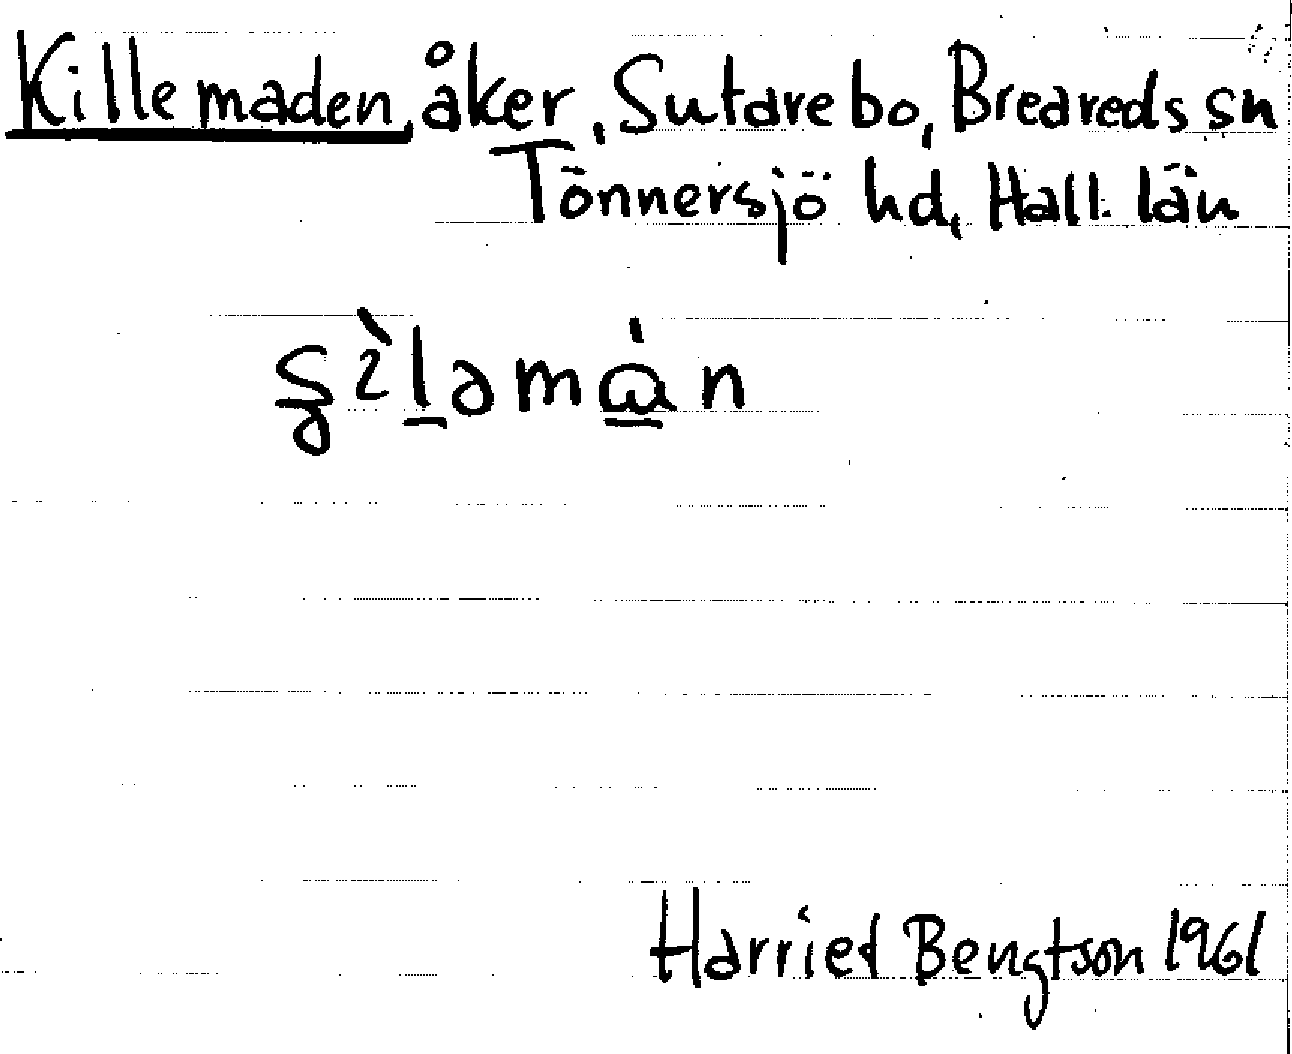 Killemaden, åker, Sutarebo, Breareds sn
Tönnersjö hd, Hall. län
ʂìləmɑ̀n
Harriet Bengtson 1961